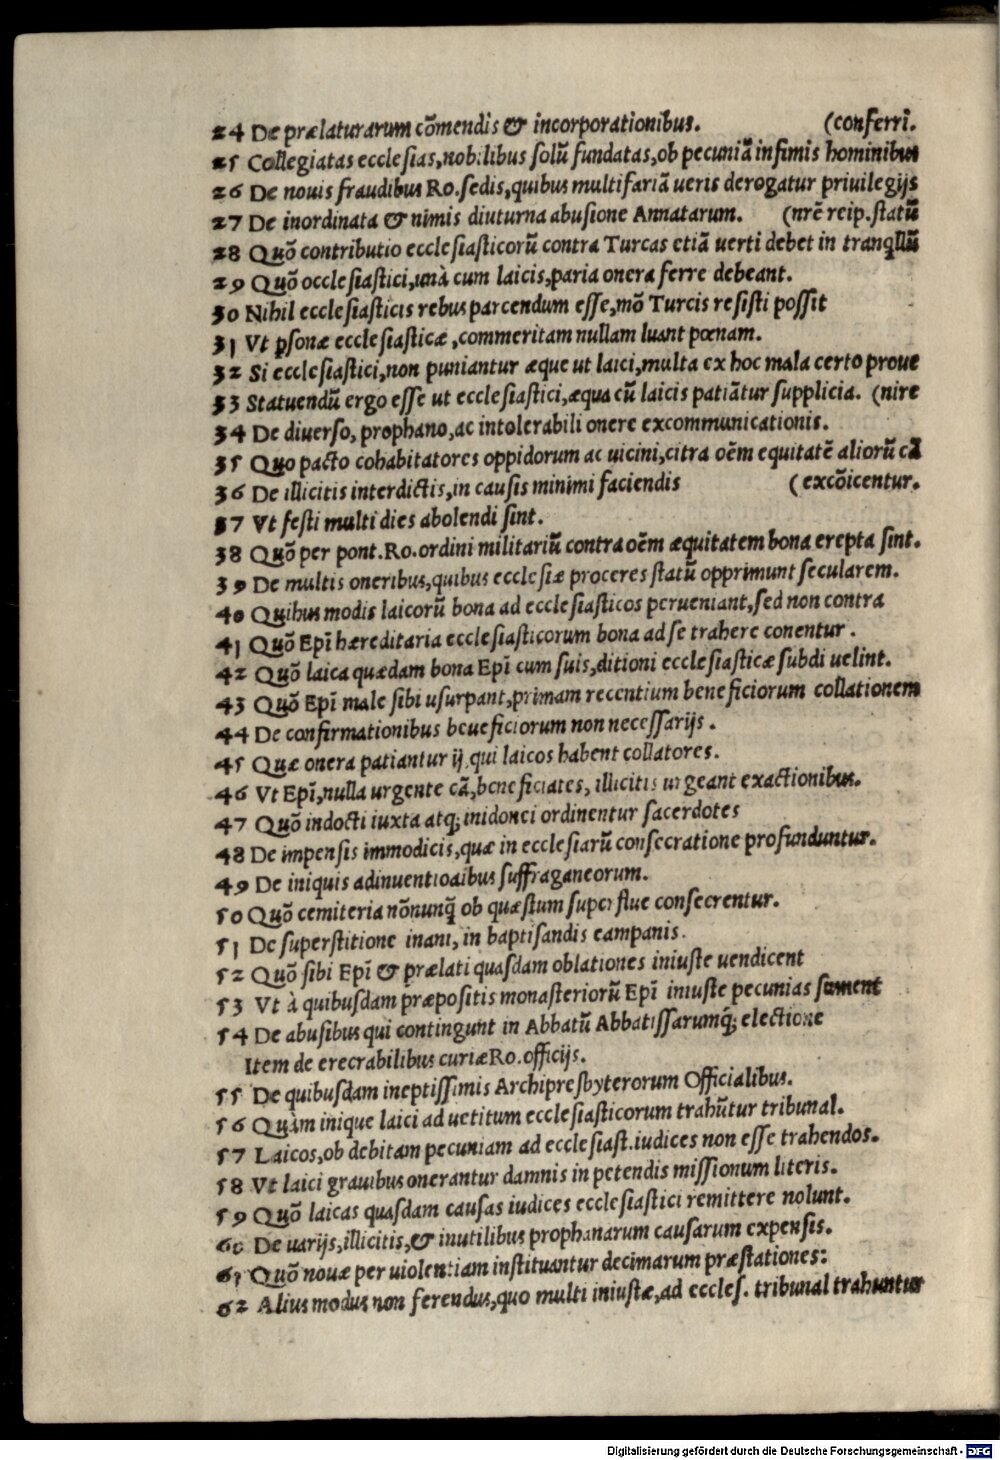 24 De prælaturarum cōmendis & incorporationibus. (conferri.
25 Collegiatas ecclesias,nobilibus solū fundatas,ob pecuniā infimis hominibus
26 De nouis fraudibus Ro.sedis,quibus multifariā ueris derogatur priuilegijs
27 De inordinata & nimis diuturna abusione Annatarum. (nrē reip.statū
28 Quō contributio ecclesiasticorū contra Turcas etiā uerti debet in tranqllū
29 Quō occlesiastici,unà cum laicis,paria onera ferre debeant.
30 Nihil ecclesiasticis rebus parcendum esse,mō Turcis resisti possit
31 Vt ꝑsonæ ecclesiasticæ,commeritam nullam luant pœnam.
32 Si ecclesiastici,non puniantur æque ut laici,multa ex hoc mala certo proue
33 Statuendū ergo esse ut ecclesiastici,æqua cū laicis patiātur supplicia. (nire
34 De diuerso,prophano,ac intolerabili onere excommunicationis.
35 Quo pacto cohabitatores oppidorum ac uicini,citra oēm equitatē aliorū cā
36 De illicitis interdictis,in causis minimi faciendis (excōicentur.
37 Vt festi multi dies abolendi sint.
38 Quō per pont.Ro.ordini militariū contra oēm æquitatem bona erepta sint.
39 De multis oneribus,quibus ecclesiæ proceres statū opprimunt secularem.
40 Quibus modis laicorū bona ad ecclesiasticos perueniant,sed non contra
41 Quō Epī hæreditaria ecclesiasticorum bona ad se trahere conentur.
42 Quō laica quædam bona Epī cum suis,ditioni ecclesiasticæ subdi uelint.
43 Quō Epī male sibi usurpant,primam recentium beneficiorum collationem
44 De confirmationibus beueficiorum non necessarijs.
45 Quæ onera patiantur ij,qui laicos habent collatores.
46 Vt Epī,nulla urgente cā,beneficiates, illicitis urgeant exactionibus.
47 Quō indocti iuxta atq; inidonei ordinentur sacerdotes
48 De impensis immodicis,quæ in ecclesiarū consecratione profunduntur.
49 De iniquis adinuentioaibus suffraganeorum.
50 Quō cemiteria nōnunq̄ ob quæstum superflue consecrentur.
51 De superstitione inani, in baptisandis campanis.
52 Quō sibi Epī & prælati quasdam oblationes iniuste uendicent
53 Vt à quibusdam præpositis monasteriorū Epī iniuste pecunias sument
54 De abusibus qui contingunt in Abbatū Abbatissarumq; electione
Item de erecrabilibus curiæ Ro.officijs.
55 De quibusdam ineptissimis Archipresbyterorum Officialibus.
56 Quàm inique laici ad uetitum ecclesiasticorum trahūtur tribunal.
57 Laicos,ob debitam pecuniam ad ecclesiast.iudices non esse trahendos.
58 Vt laici grauibus onerantur damnis in petendis missionum literis.
59 Quō laicas quasdam causas iudices ecclesiastici remittere nolunt.
60 De uarijs,illicitis,& inutilibus prophanarum causarum expensis.
61 Quō nouæ per uiolentiam instituantur decimarum præstationes:
62 Alius modus non ferendus,quo multi iniustæ,ad eccles. tribunal trahuntur
Digitalisierung gefördert durch die Deutsche Forschungsgemeinschaft - DFG